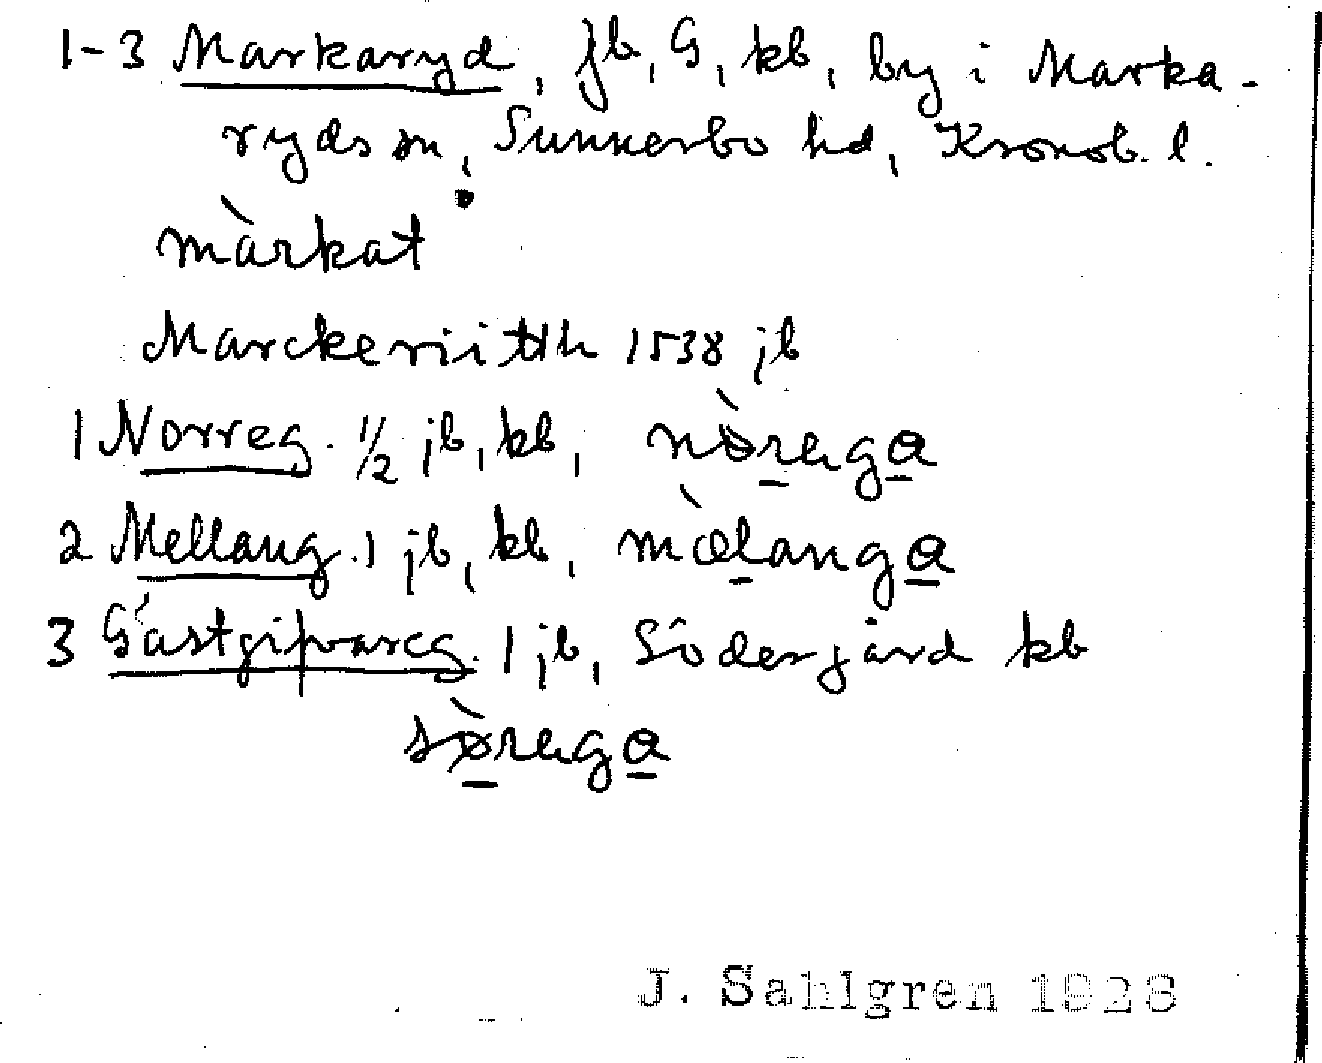 1-3 Markaryd, jb, G, kb, by i Marka-
ryds sn, Sunnerbo hd, Kronob. l.
màrkat
Marckeriitth 1538 jb
1 Norreg. 1/2 jb, kb, nòrega
2 Mellang. 1 jb, kb, mæ̀langa
3 Gästgifvareg. 1 jb, Södergård kb
sø̀rega
J. Sahlgren 1926